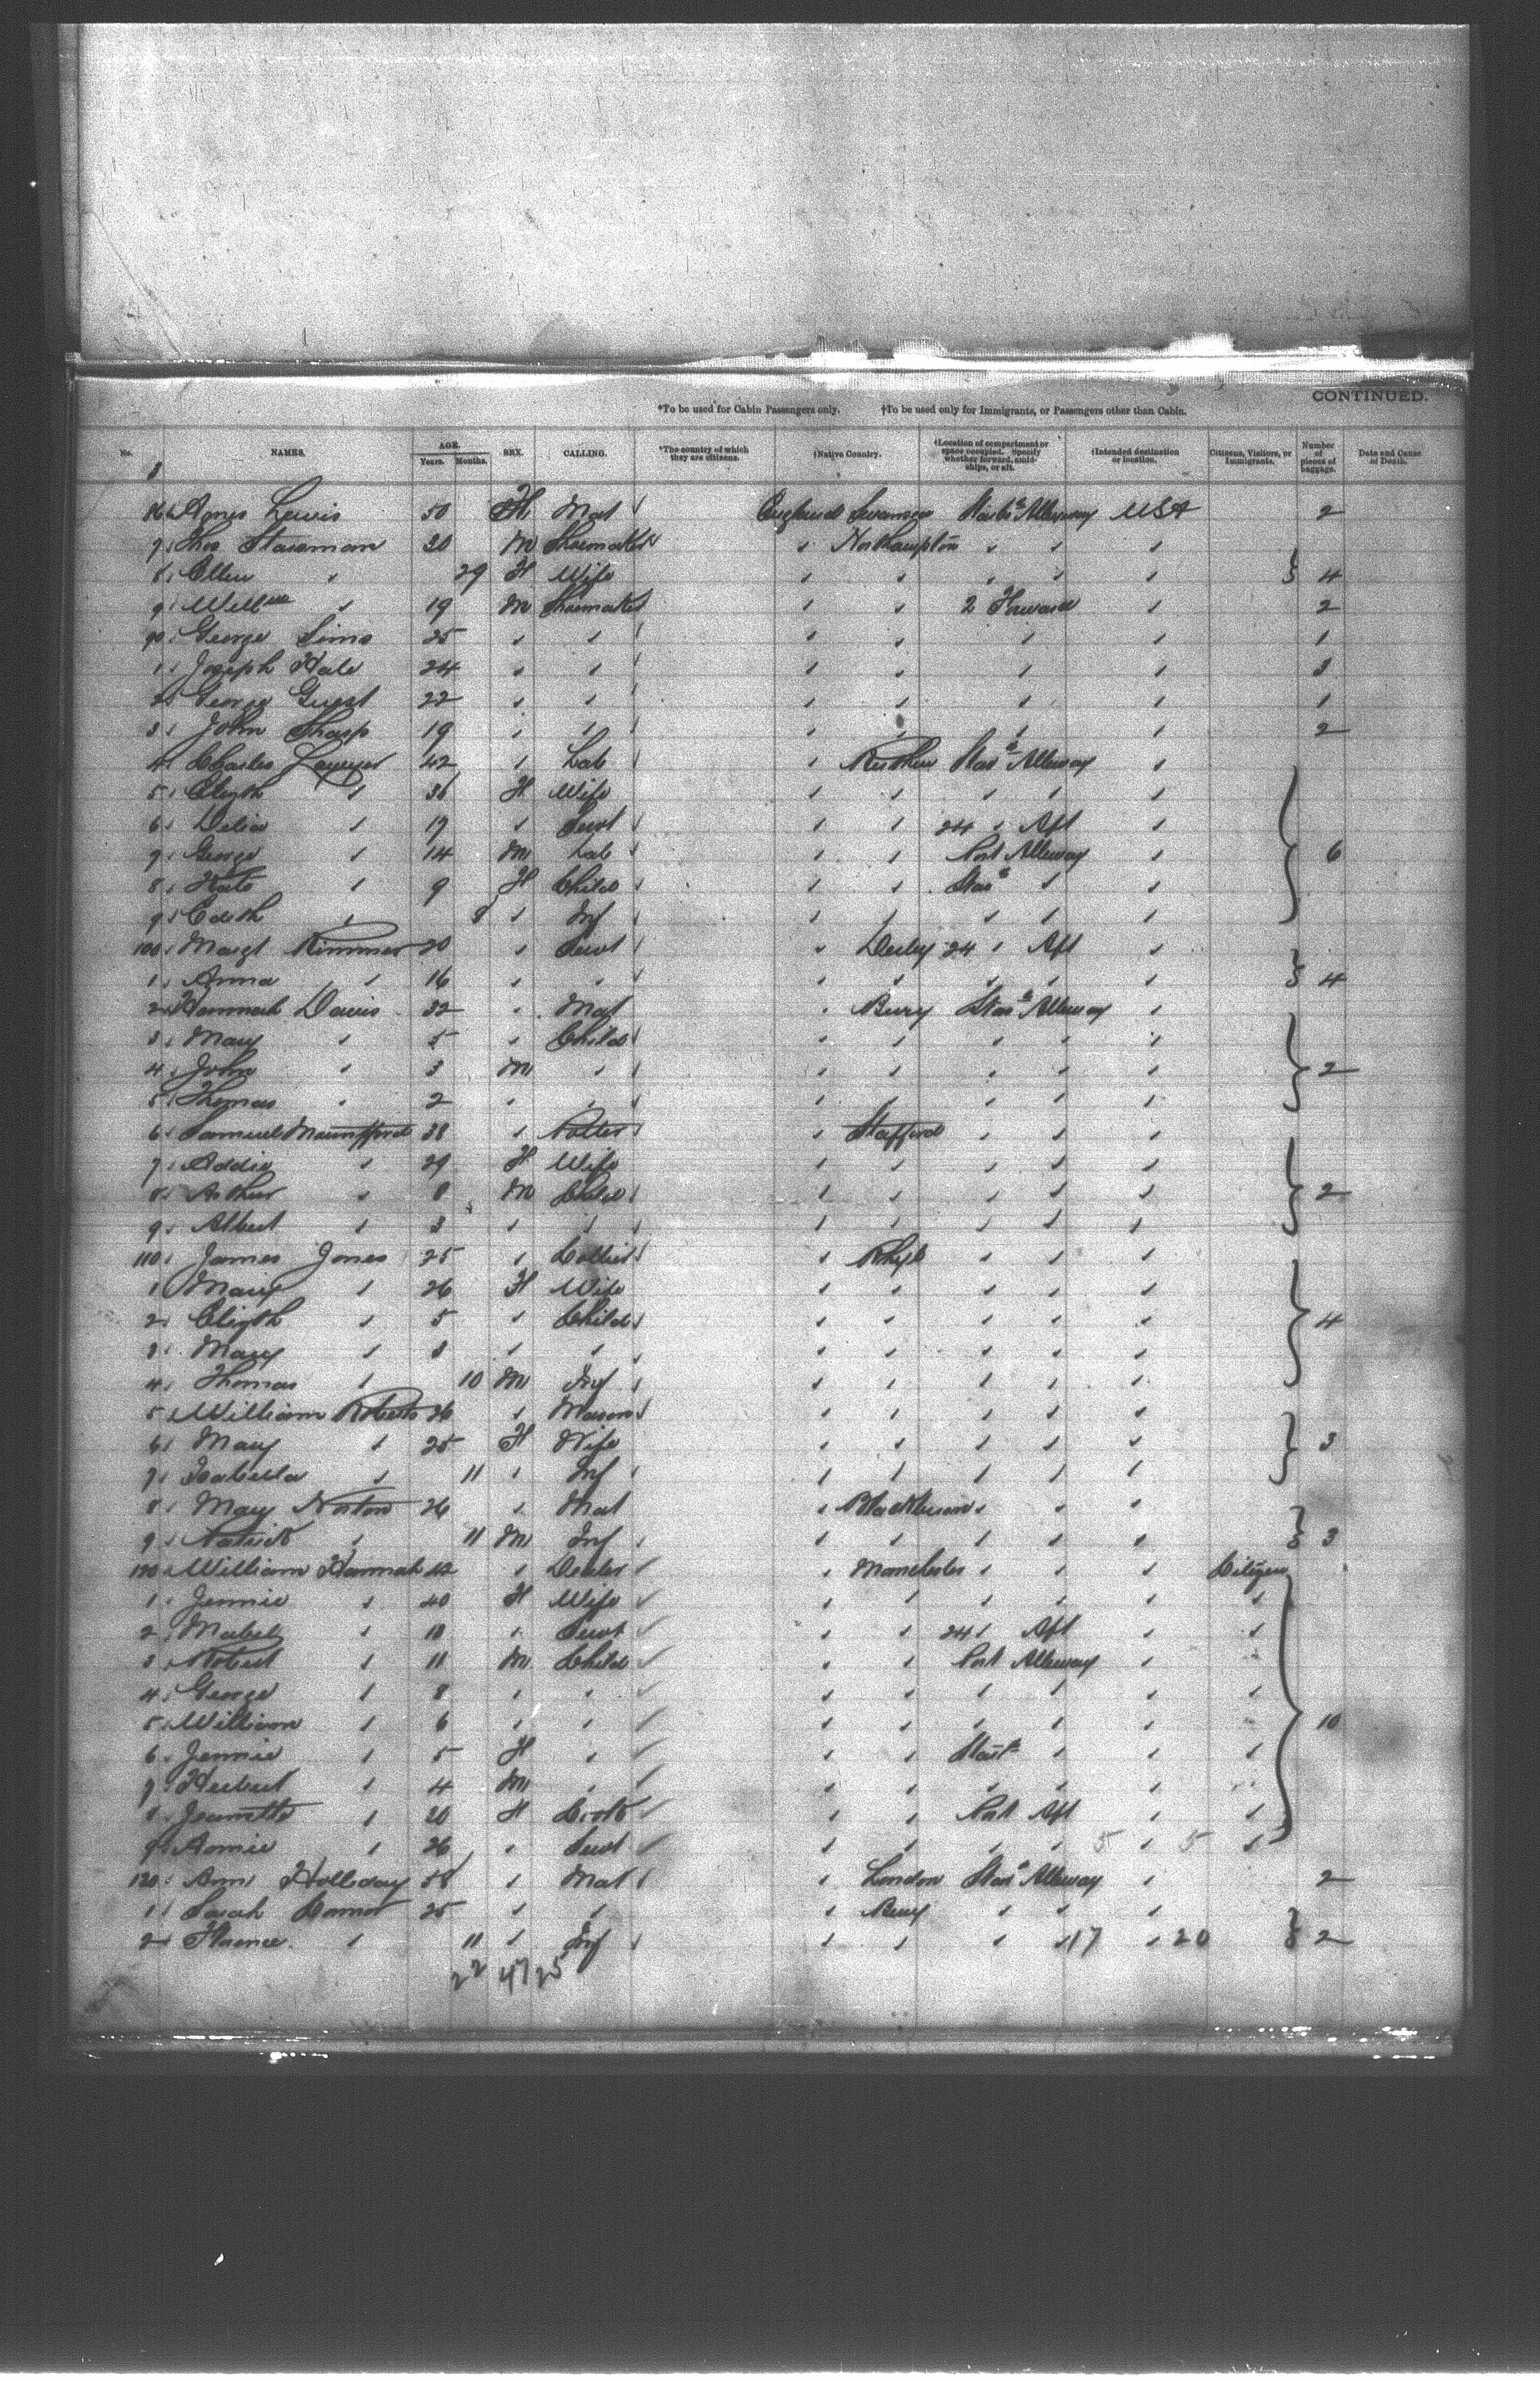 CONTINUED.
*To be used for Cabin Passengers only. †To be used only for Immigrants, or Passengers other than Cabin.
No. NAMES. AGE. Years. Months. SEX. CALLING. *The country of which they are citizens. †Native Country. †Location of compartment or space occupied. Specify whether forward, amidships, or aft. †Intended destination or location. Citizens, Visitors, or Immigrants. Number of pieces of baggage. Date and Cause of Death.
86 Agnes Lewis 50 F Mat England Swansea Starbd Alleway USA 2
7 Thos 30 M Shoemaker " Northampton " " "
8 Ellen " 29 F Wife " " " " " 4
9 Willm " 19 M Shoemaker " " 2 Forward " 2
90 George Sims 25 " " " " " " 1
1 Joseph Hale 24 " " " " " " 3
2 George Guest 22 " " " " " " 1
3 John Sharp 19 " " " " " " 2
4 Charles 42 " Lab " Starbd Alleway "
5 Elizth " 36 F Wife " " " " "
6 Delia " 17 " Servt " " 24 " Aft "
7 George " 14 M Lab " " Port Alleway " 6
8 Kate " 9 F Child " " Starbd " "
9 Edith " 8 " Inf " " " " "
100 Margt Rimmer 20 " Servt " Derby 24 " Aft "
1 Anna " 16 " " " " " " " 4
2 Hannah Davis 32 " Mat " Bury Starbd Alleway "
3 Mary " 5 " Child " " " " "
4 John " 3 M " " " " " " 2
5 Thomas " 2 " " " " " " "
6 Samuel 38 " Potter " Stafford " " "
7 Addie " 29 F Wife " " " " "
8 Arthur " 8 M Child " " " " " 2
9 Albert " 3 " " " " " " "
110 James Jones 25 " Collier " Rhyl " " "
1 Mary " 26 F Wife " " " " "
2 Elizth " 5 " Child " " " " " 4
3 Mary " 3 " " " " " " "
4 Thomas " 10 M Inf " " " " "
5 William Roberts 26 " Mason " " " " "
6 Mary " 25 F Wife " " " " " 3
7 Isabella " 11 " Inf " " " " "
8 Mary Norton 26 " Mat " Blackburn " " "
9 Patrick " 11 M Inf " " " " " 3
120 William Hannah 42 " Dealer " Manchester " " " Citizen
1 Jennie " 40 F Wife " " " " " "
2 Mabel " 18 " Servt " " 24 " Aft " "
3 Robert " 11 M Child " " Port Alleway " "
4 George " 8 " " " " " " " "
5 William " 6 " " " " " " " " 10
6 Jennie " 5 F " " " Starbd " " "
7 Herbert " 4 M " " " " " " "
8 Jeanette " 20 F Cook " " Port Aft " "
9 Annie " 26 " Servt " " " " 5 " 5 "
120 Ann Holliday 58 " Mat " London Starbd Alleway " 2
1 Sarah 25 " " " Bury " " "
2 Florence " 11 " Inf " " " " 17 " 20 2
22 47 25